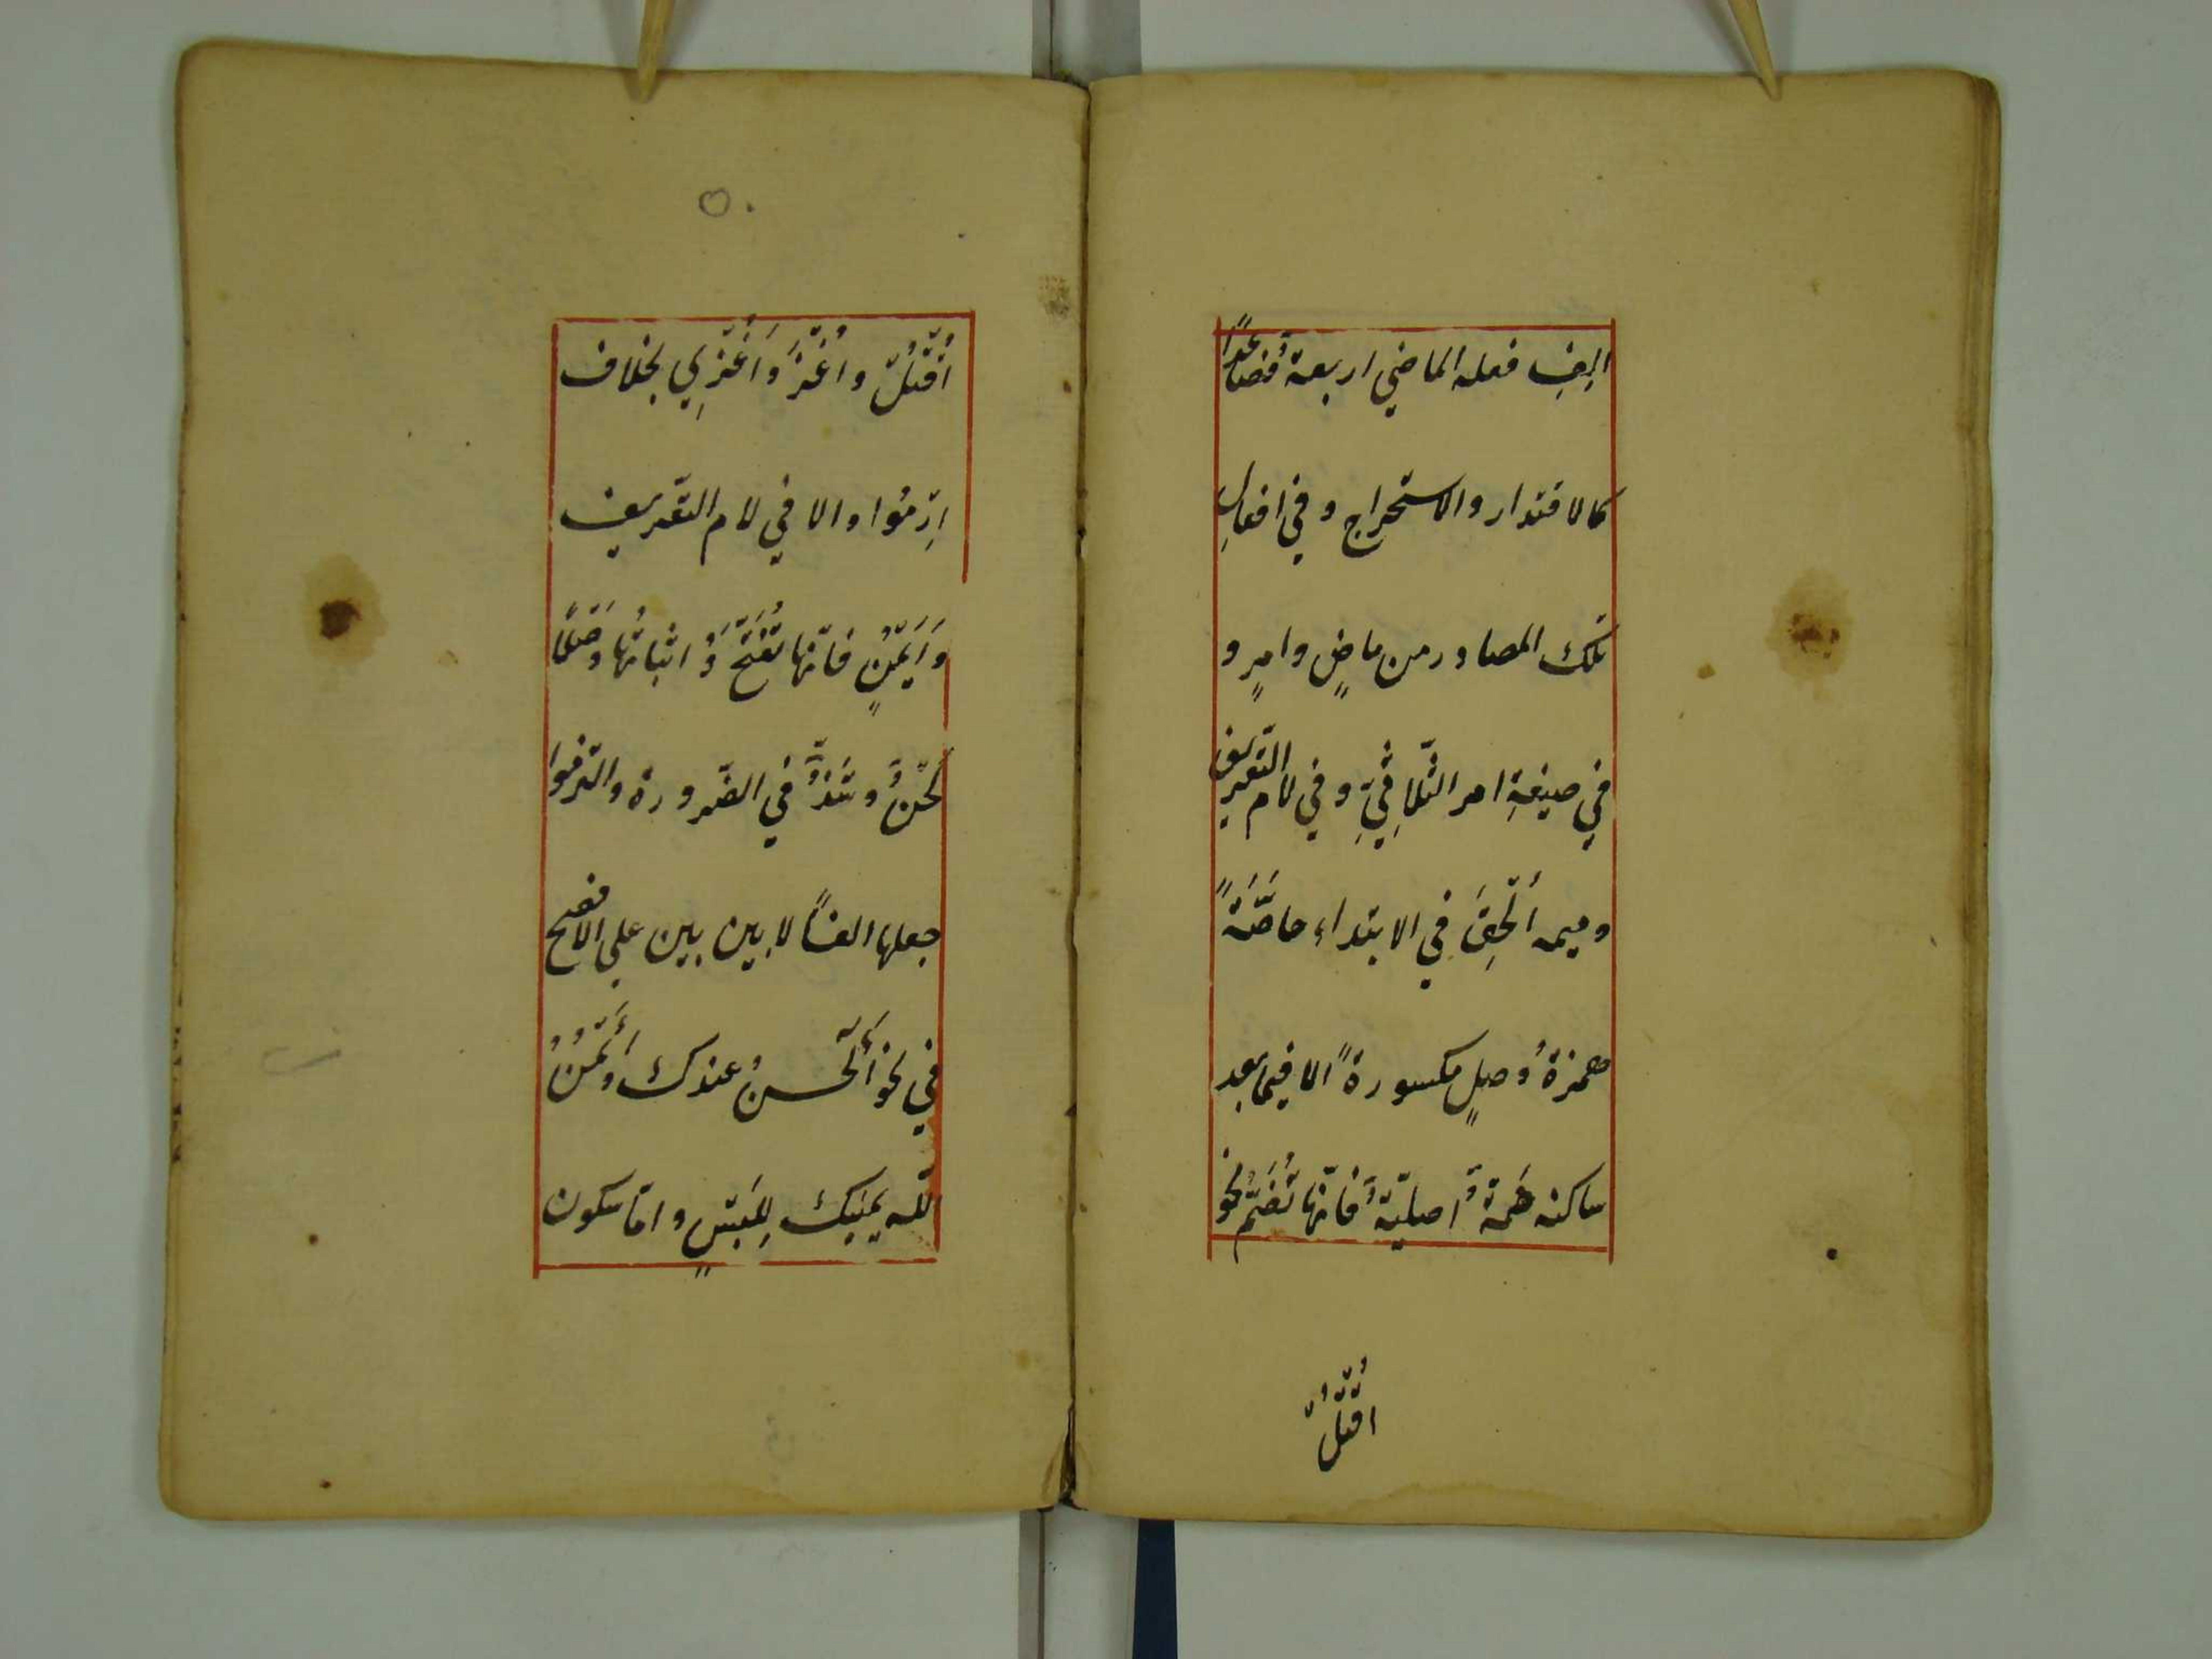 الف فعله الماضي اربعة فصاعدًا
كالاقتدار والاستخراج وفي افعال
تلك المصادر من ماضٍ وامرٍ و
في صيغةِ امر الثّلاثيِّ وفي لام التّعريف
وميمه اُلْحِقَ في الابتداء خاصَّةً
همزةُ وصلٍ مكسورةً الا فيما بعد
ساكنه ضَمة اصليّة فانّها تُضَمّ نحو
اُقْتُلْ
اُقْتُلْ واُغْزُ واُغْزِي بخلاف
اِرْمُوا والا في لام التّعريف
وَاَيْمُنٍ فانّها تُفْتَحُ واثباتُها وَصْلًا
لَحْنٌ وشَذَّ في الضّرورة والتزموا
جعلها الفًا لا بين بين علي الافصح
في نحو أَلْحسنُ عندك وأَيْمُنُ
اللّه يمينك لِلَبْسٍ وامّا سكون